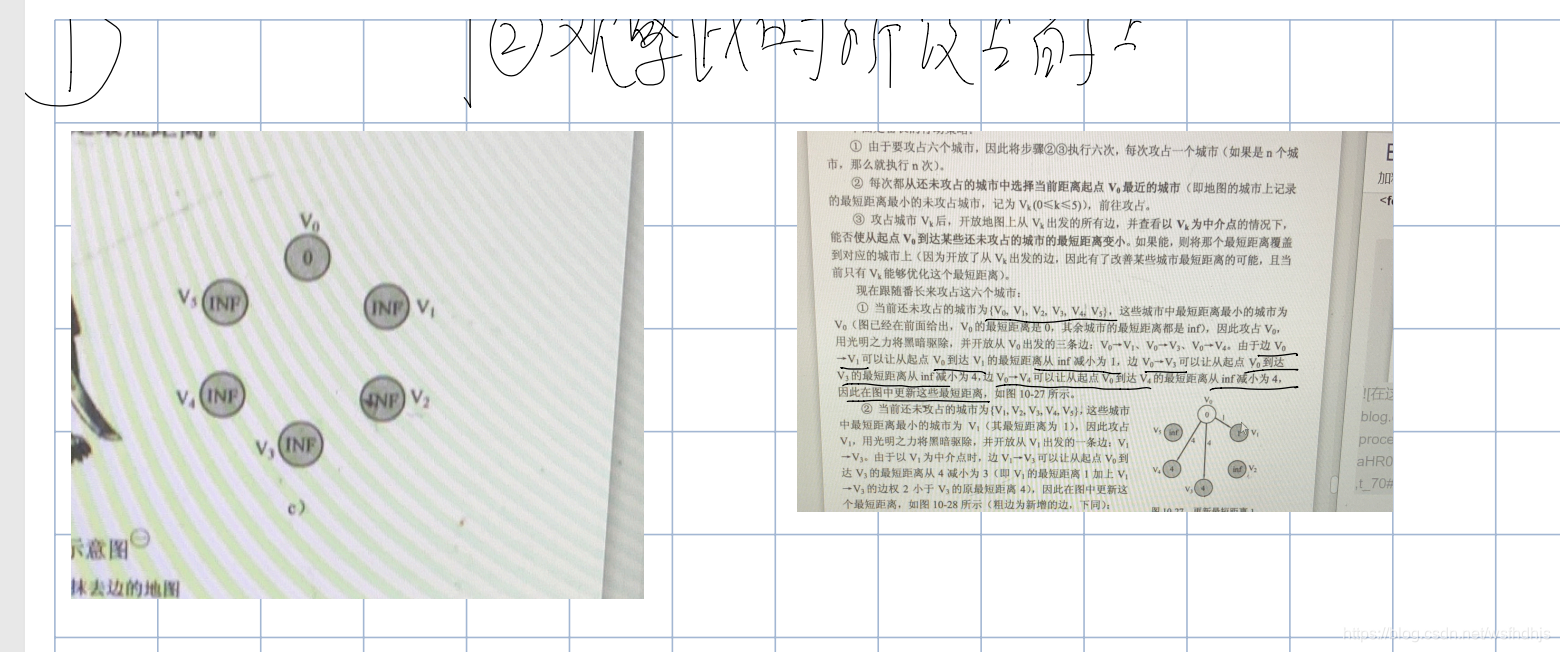 ①
②
V0
0
V5 INF
INF V1
V4 INF
INF V2
V3 INF
c）
示意图
抹去边的地图
① 由于要攻占六个城市，因此将步骤②③执行六次，每次攻占一个城市（如果是 n 个城
市，那么就执行 n 次）。
② 每次都从还未攻占的城市中选择当前距离起点 V0 最近的城市（即地图的城市上记录
的最短距离最小的未攻占城市，记为 Vk(0≤k≤5)），前往攻占。
③ 攻占城市 Vk 后，开放地图上从 Vk 出发的所有边，并查看以 Vk 为中介点的情况下，
能否使从起点 V0 到达某些还未攻占的城市的最短距离变小。如果能，则将那个最短距离覆盖
到对应的城市上（因为开放了从 Vk 出发的边，因此有了改善某些城市最短距离的可能，且当
前只有 Vk 能够优化这个最短距离）。
现在跟随番长来攻占这六个城市：
① 当前还未攻占的城市为{V0, V1, V2, V3, V4, V5}，这些城市中最短距离最小的城市为
V0（图已经在前面给出，V0 的最短距离是 0，其余城市的最短距离都是 inf），因此攻占 V0，
用光明之力将黑暗驱除，并开放从 V0 出发的三条边：V0→V1、V0→V3、V0→V4。由于边 V0
→V1 可以让从起点 V0 到达 V1 的最短距离从 inf 减小为 1，边 V0→V3 可以让从起点 V0 到达
V3 的最短距离从 inf 减小为 4，边 V0→V4 可以让从起点 V0 到达 V4 的最短距离从 inf 减小为 4，
因此在图中更新这些最短距离，如图 10-27 所示。
② 当前还未攻占的城市为{V1, V2, V3, V4, V5}，这些城市
中最短距离最小的城市为 V1（其最短距离为 1），因此攻占
V1，用光明之力将黑暗驱除，并开放从 V1 出发的一条边：V1
→V3。由于以 V1 为中介点时，边 V1→V3 可以让从起点 V0 到
达 V3 的最短距离从 4 减小为 3（即 V1 的最短距离 1 加上 V1
→V3 的边权 2 小于 V3 的原最短距离 4），因此在图中更新这
个最短距离，如图 10-28 所示（粗边为新增的边，下同）：
V0
0
1
V5 inf
V1
4
4
V4 4
inf V2
V3 4
图 10-27 更新最短距离 1
加
<f
![在这
blog.
proce
aHR0
,t_70#
https://blog.csdn.net/wsfhdhjs